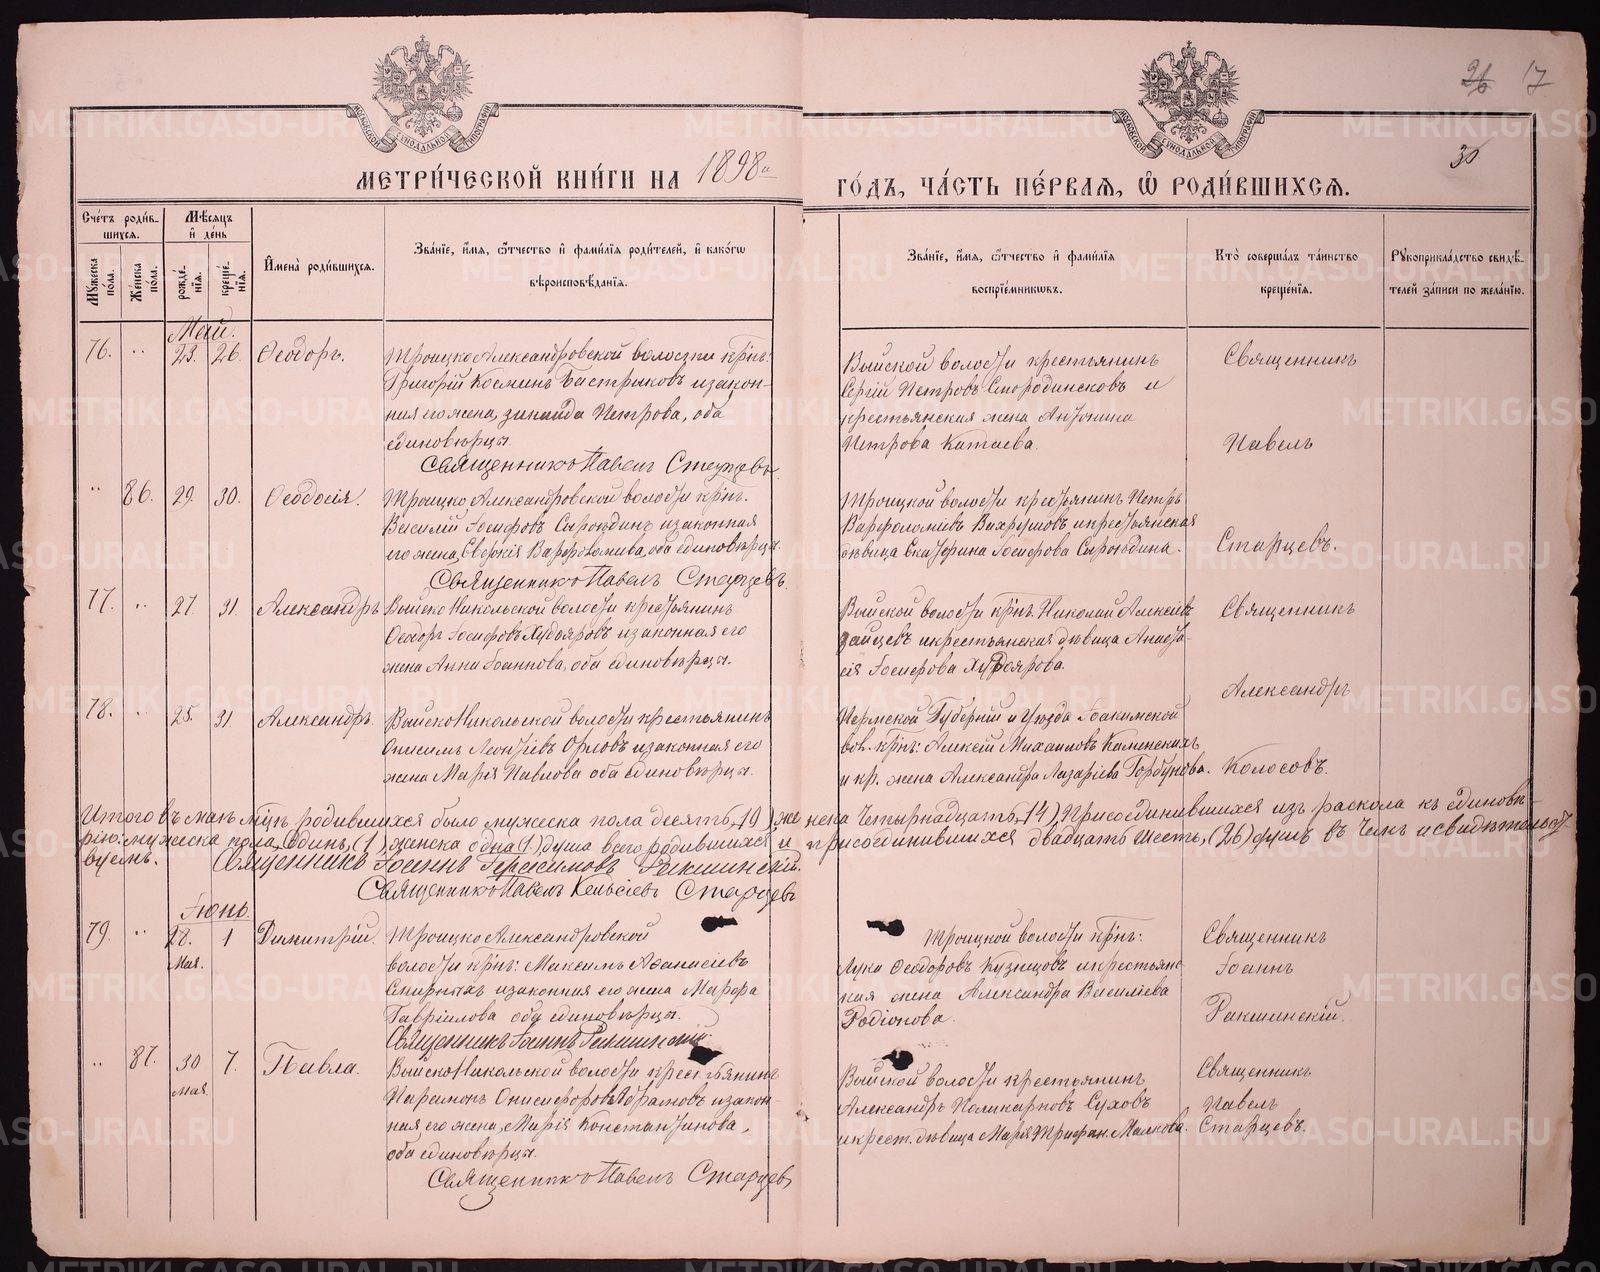 26 17
30
МЕТРИ́ЧЕСКОЙ КНИ́ГИ НА 1898й
ГО́ДЪ, ЧА́СТЬ ПЕ́РВАѦ, Ѽ РОДИ́ВШИХСѦ.
Сче́тъ роди́в-
шихсѧ.
Мѣ́сѧцъ
и҆ де́нь
Мꙋ́жеска
по́ла.
Же́нска
по́ла.
рожде́-
нїѧ.
креще́-
нїѧ.
И҆мена̀ роди́вшихсѧ.
Зва́нїе, и҆́мѧ, ѻ҆́тчество и҆ фами́лїѧ роди́телей, и҆ како́гѡ
вѣроисповѣ́данїѧ.
Зва́нїе, и҆́мѧ, ѻ҆́тчество и҆ фами́лїѧ
воспрїе́мникѡвъ.
Кто̀ соверша́лъ та́инство
креще́нїѧ.
Рꙋкоприкла́дство свидѣ́-
телей за́писи по жела́нїю.
Май.
76. „ 23. 26. Ѳеодоръ. Троицко Александровской волости крн:
Григорій Косминъ Бастрыковъ и закон-
ная его жена, Зинаида Петрова, оба
единовѣрцы.
Выйской волости крестьянинъ
Сергій Петровъ Смородинсковъ и
крестьянская жена Антонина
Петрова Катаева.
Священникъ
Павелъ
Священникъ Павелъ Старцевъ
„ 86. 29. 30. Ѳеодосія. Троицко Александровской волости крн.
Василій Іосифовъ Сыроѣдинъ и законная
его жена, Евфкія Варфоломиева, оба единовѣрцы.
Троицкой волости крестьянинъ Петръ
Варфоломѣевъ Вахрушовъ и крестьянская
дѣвица Екатерина Іосифова Сыроѣдина.
Старцевъ.
Священникъ Павелъ Старцевъ.
77. „ 27. 31. Александръ Выйско Никольской волости крестьянинъ
Ѳеодоръ Іосифовъ Худояровъ и законная его
жена Анна Іоаннова, оба единовѣрцы.
Выйской волости крн. Николай Алексѣевъ
Зайцевъ и крестьянская дѣвица Анаста-
сія Іосифова Худоярова.
Священникъ
Александръ
78. „ 25. 31. Александръ. Выйско Никольской волости крестьянинъ
Онисимъ Леонтіевъ Орловъ и законная его
жена Марія Павлова оба единовѣрцы.
Пермской Губерніи и Уѣзда Іоакимской
вол. крн: Алексій Михаиловъ Каменскихъ
и кр. жена Александра Лазаріева Горбунова.
Колосовъ.
Итого въ маѣ мцѣ родившихся было мужеска пола десять, (10), женска Четырнадцать, (14), Присоединившихся изъ раскола къ единовѣ-
рію: мужеска пола, Одинъ, (1), женска одна (1) душа всего родившихся и присоединившихся двадцать шесть, (26) душъ въ чемъ и свидѣтельст-
вуемъ. Священникъ Іоаннъ Герасимовъ Ракшинскій.
Священникъ Павелъ Кельсіевъ Старцевъ
Іюнь.
79. „ 28. 1 Димитрій. Троицко Александровской
Мая.
волости крн: Максимъ Аѳанасіевъ
Смирныхъ и законная его жена Марфа
Гавріилова оба единовѣрцы.
Троицкой волости крн:
Лука Ѳеодоровъ Кузнецовъ и крестьянс-
кая жена Александра Василіева
Родіонова.
Священникъ
Іоаннъ
Ракшинскій.
Священникъ Іоаннъ Ракшинскій.
„ 87. 30 7. Павла. Выйско Никольской волости крестьянинъ
Мая
Парамонъ Онисифоровъ Абрамовъ и закон-
ная его жена, Марія Константинова,
оба единовѣрцы.
Выйской волости крестьянинъ
Александръ Поликарповъ Суховъ
и крест. дѣвица Марія Трифан. Малкова.
Священникъ
Павелъ
Старцевъ.
Священникъ Павелъ Старцевъ